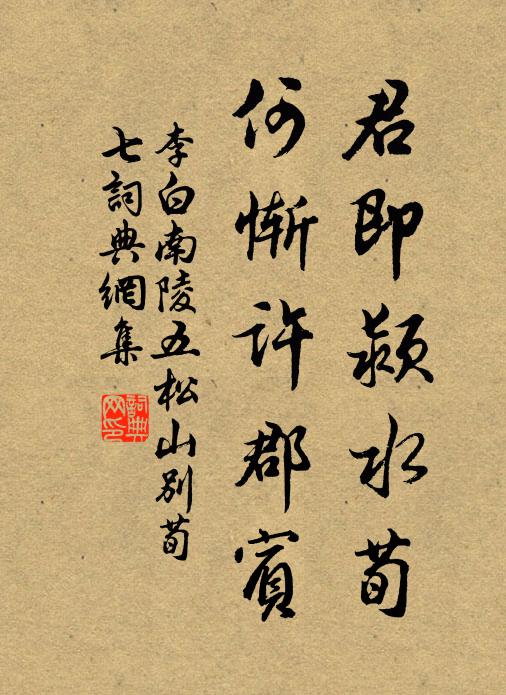 君即潁水荀
何慚許郡賓
李白南陵五松山别荀
七詞典網集
詞典网印